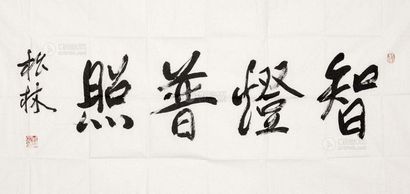 智燈普照
松林